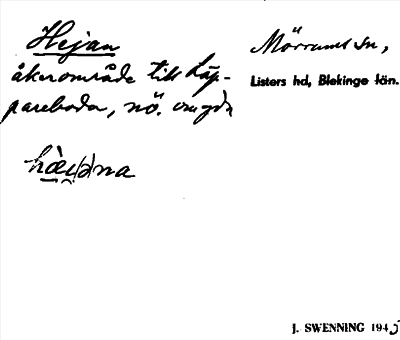 Hejan
Mörrums sn,
åkerområde till Läp-
Listers hd, Blekinge län.
pareboda, nö.
J. SWENNING 1945